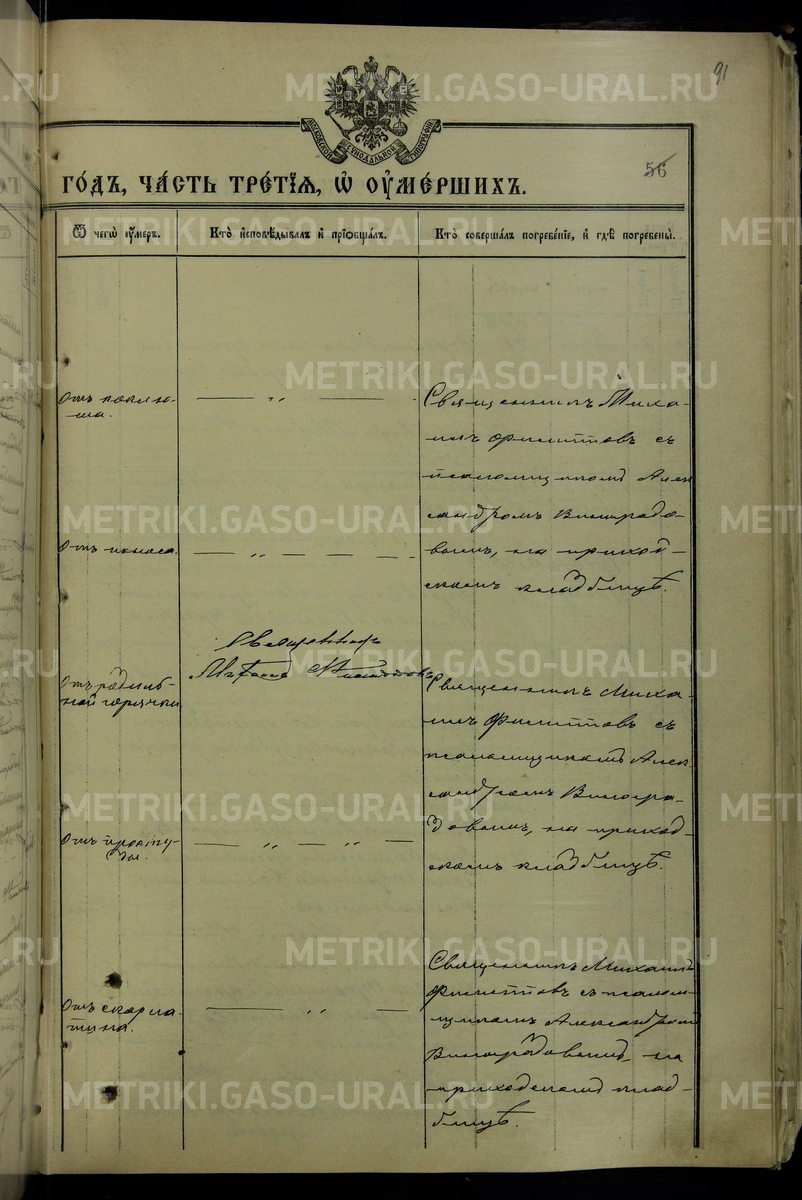 91
56
МОСКОВСКОЙ СѴНОДАЛЬНОЙ ТИПОГРАФІИ
ГО́ДЪ, ЧА́СТЬ ТРЕ́ТІѦ, Ѡ҆ ОУ҆МЕ́РШИХЪ.
Ѿ чегѡ̀ оу҆́меръ.
Кто̀ и҆сповѣ́дывалъ и҆ прїѡбща́лъ.
Кто̀ соверша́лъ погребе́нїе, и҆ гдѣ̀ погребены̀.
Отъ коклю-
ша.
Священникъ Миха-
илъ Филиттовъ съ
псаломщикомъ Алек
сандромъ Виноградо-
вымъ, на приход-
скомъ кладбищѣ.
Отъ поноса.
Священникъ
Отъ родиль-
ной горячки
Священникъ Миха-
илъ Филиттовъ съ
псаломщикомъ Алек
сандромъ Виногра-
довымъ, на приход-
скомъ кладбищѣ.
Отъ просту-
ды.
Отъ скарла-
тина.
Священникъ Михаилъ
Филиттовъ съ псалом-
щикомъ Александромъ
Виноградовымъ, на
приходскомъ клад-
бищѣ.
METRIKI.GASO-URAL.RU